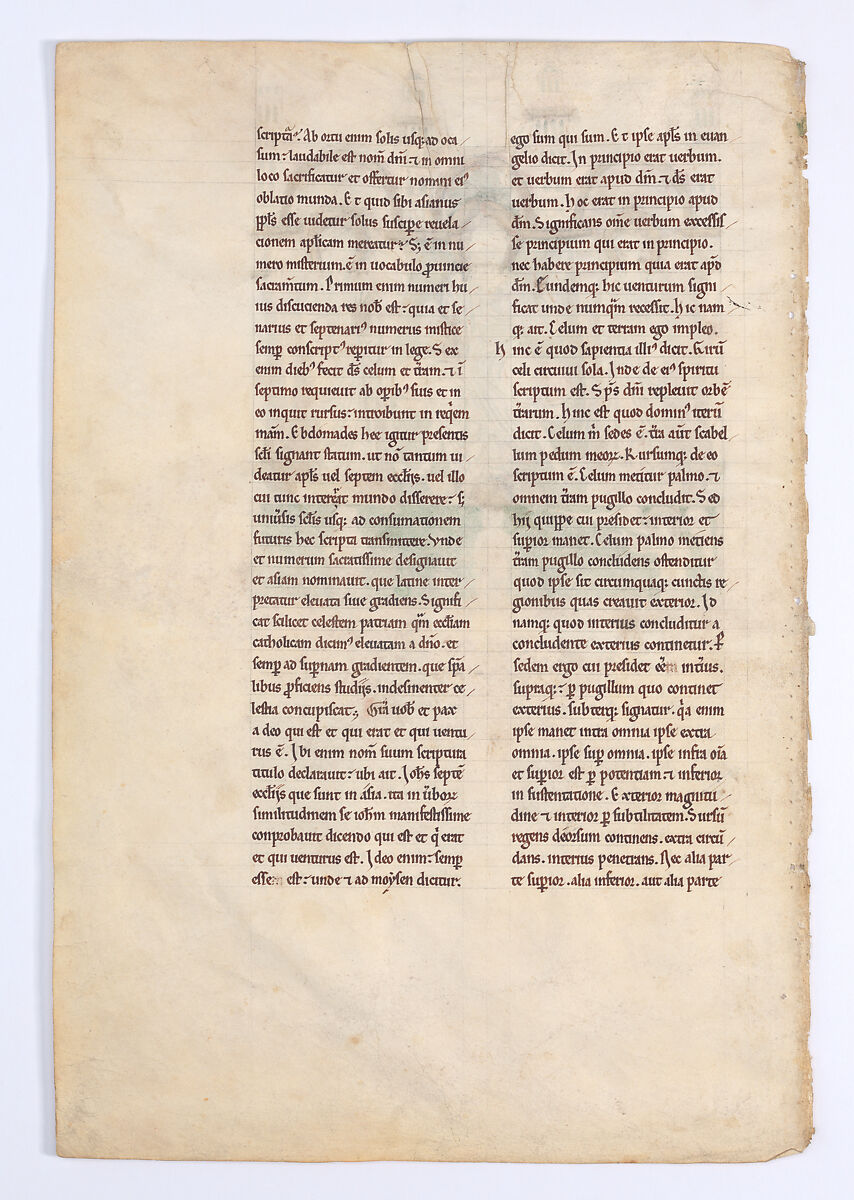 scriptā. Ab ortu enim solis usq; ad oca
sum: laudabile est nom̄ dn̄i: ⁊ in omni
loco sacrificatur et offertur nomini eiꝰ
oblatio munda. Et quid sibi asianus
ppl̄s esse uidetur solus suscipe reuela
cionem apl̄icam mereatur: S; ē in nu
mero misterium. ē in uocabulo prouincie
sacram̄tum. Primum enim numeri hu
ius discucienda res nob̄ est: quia et se
narius et septenariꝰ numerus mistice
semp conscriptꝰ repitur in lege. Sex
enim diebꝰ fecit dš celum et t̄ram. ⁊ ī
septimo requieuit ab opibꝰ suis et in
eo inquit rursus: introibunt in req̄em
mām. Ebdomades hec igitur presentis
sc̄li signant statum. ut nō tantum ui
deatur apl̄s uel septem eccl̄ijs. uel illo
cui tunc interat mundo disserere: s;
uniūsis sc̄lis usq; ad consumationem
futuris hec scripta transmittere. Vnde
et numerum sacratissime designauit
et asiam nominauit. que latine inter
pretatur eleuata siue gradiens. Signifi
cat scilicet celestem patriam qm̄ eccl̄iam
catholicam dicimꝰ eleuatam a dn̄o. et
semp ad supnam gradientem. que spā
libus proficiens studijs. indesinenter ce
lestia concupiscat. Grā uob̄ et pax
a deo qui est et qui erat et qui uentu
rus ē. Ibi enim nom̄ suum scriptura
titulo declarauit: ubi ait. Ioh̄s septē
eccl̄ijs que sunt in asia. ita in ūbore
similitudinem se ioh̄m manifestissime
conprobauit dicendo qui est et q̄ erat
et qui uenturus est. Ideo enim: semp
esse est: unde ⁊ ad moysen dicitur.
ego sum qui sum. Et ipse apl̄s in euan
gelio dicit. In principio erat uerbum.
et uerbum erat apud dm̄. ⁊ dš erat
uerbum. hoc erat in principio apud
dm̄. Significans om̄e uerbum excessis
se principium qui erat in principio.
nec habere principium quia erat apd̄
dm̄. Eundemq; hic uenturum signi
ficat unde numqm̄ recessit. hic nam
q; ait. Celum et terram ego impleo.
hinc ē quod sapientia illiꝰ dicit. Girū
celi circuiui sola. Inde de eiꝰ spiritu
scriptum est. Sp̄s dn̄i repleuit orbē
t̄rarum. hinc est quod dominꝰ iterū
dicit. Celum m̄ sedes ē. t̄ra aūt scabel
lum pedum meoꝝ. Rursumq; de eo
scriptum ē. Celum metitur palmo. ⁊
omnem t̄ram pugillo concludit. Sed
hij quippe cui presidet: interior et
supior manet. Celum palmo metiens
t̄ram pugillo concludens ostenditur
quod ipse sit circumquaq; cunctis re
gionibus quas creauit exterior. Id
namq; quod interius concluditur a
concludente exterius continetur. P
sedem ergo cui presidet ēē intius.
supraq;: ꝑ pugillum quo continet
exterius. subterq; signatur. q̄a enim
ipse manet intra omnia ipse extra
omnia. ipse sup omnia. ipse infra oīa
et supior est ꝑ potentiam: ⁊ inferior
in sustentatione. Exterior magnitu
dine ⁊ interior ꝑ subtilitatem. Sursū
regens deorsum continens. extra circū
dans. interius penetrans. Nec alia par
te supior. alia inferior. aut alia parte